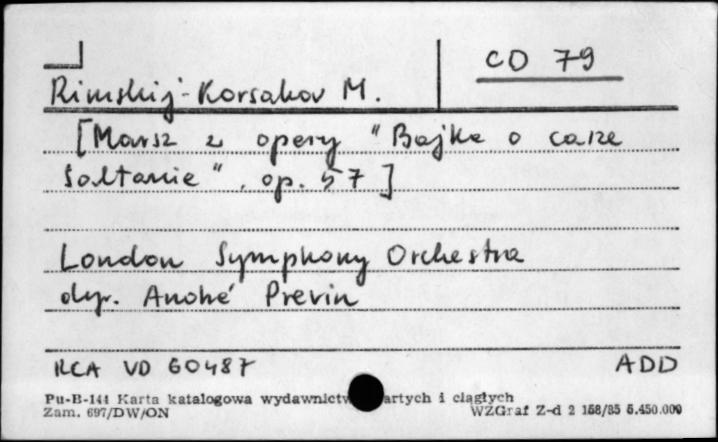 CD 79
Rimskij-Korsakov M.
[Marsz z opery "Bajka o carze
Sałtanie", op. 57]
London Symphony Orchestra
dyr. André Previn
RCA VD 60487 ADD
Pu-B-144 Karta katalogowa wydawnictw artych i ciągłych
Zam. 697/DW/ON WZGraf Z-d 2 158/85 5.450.000